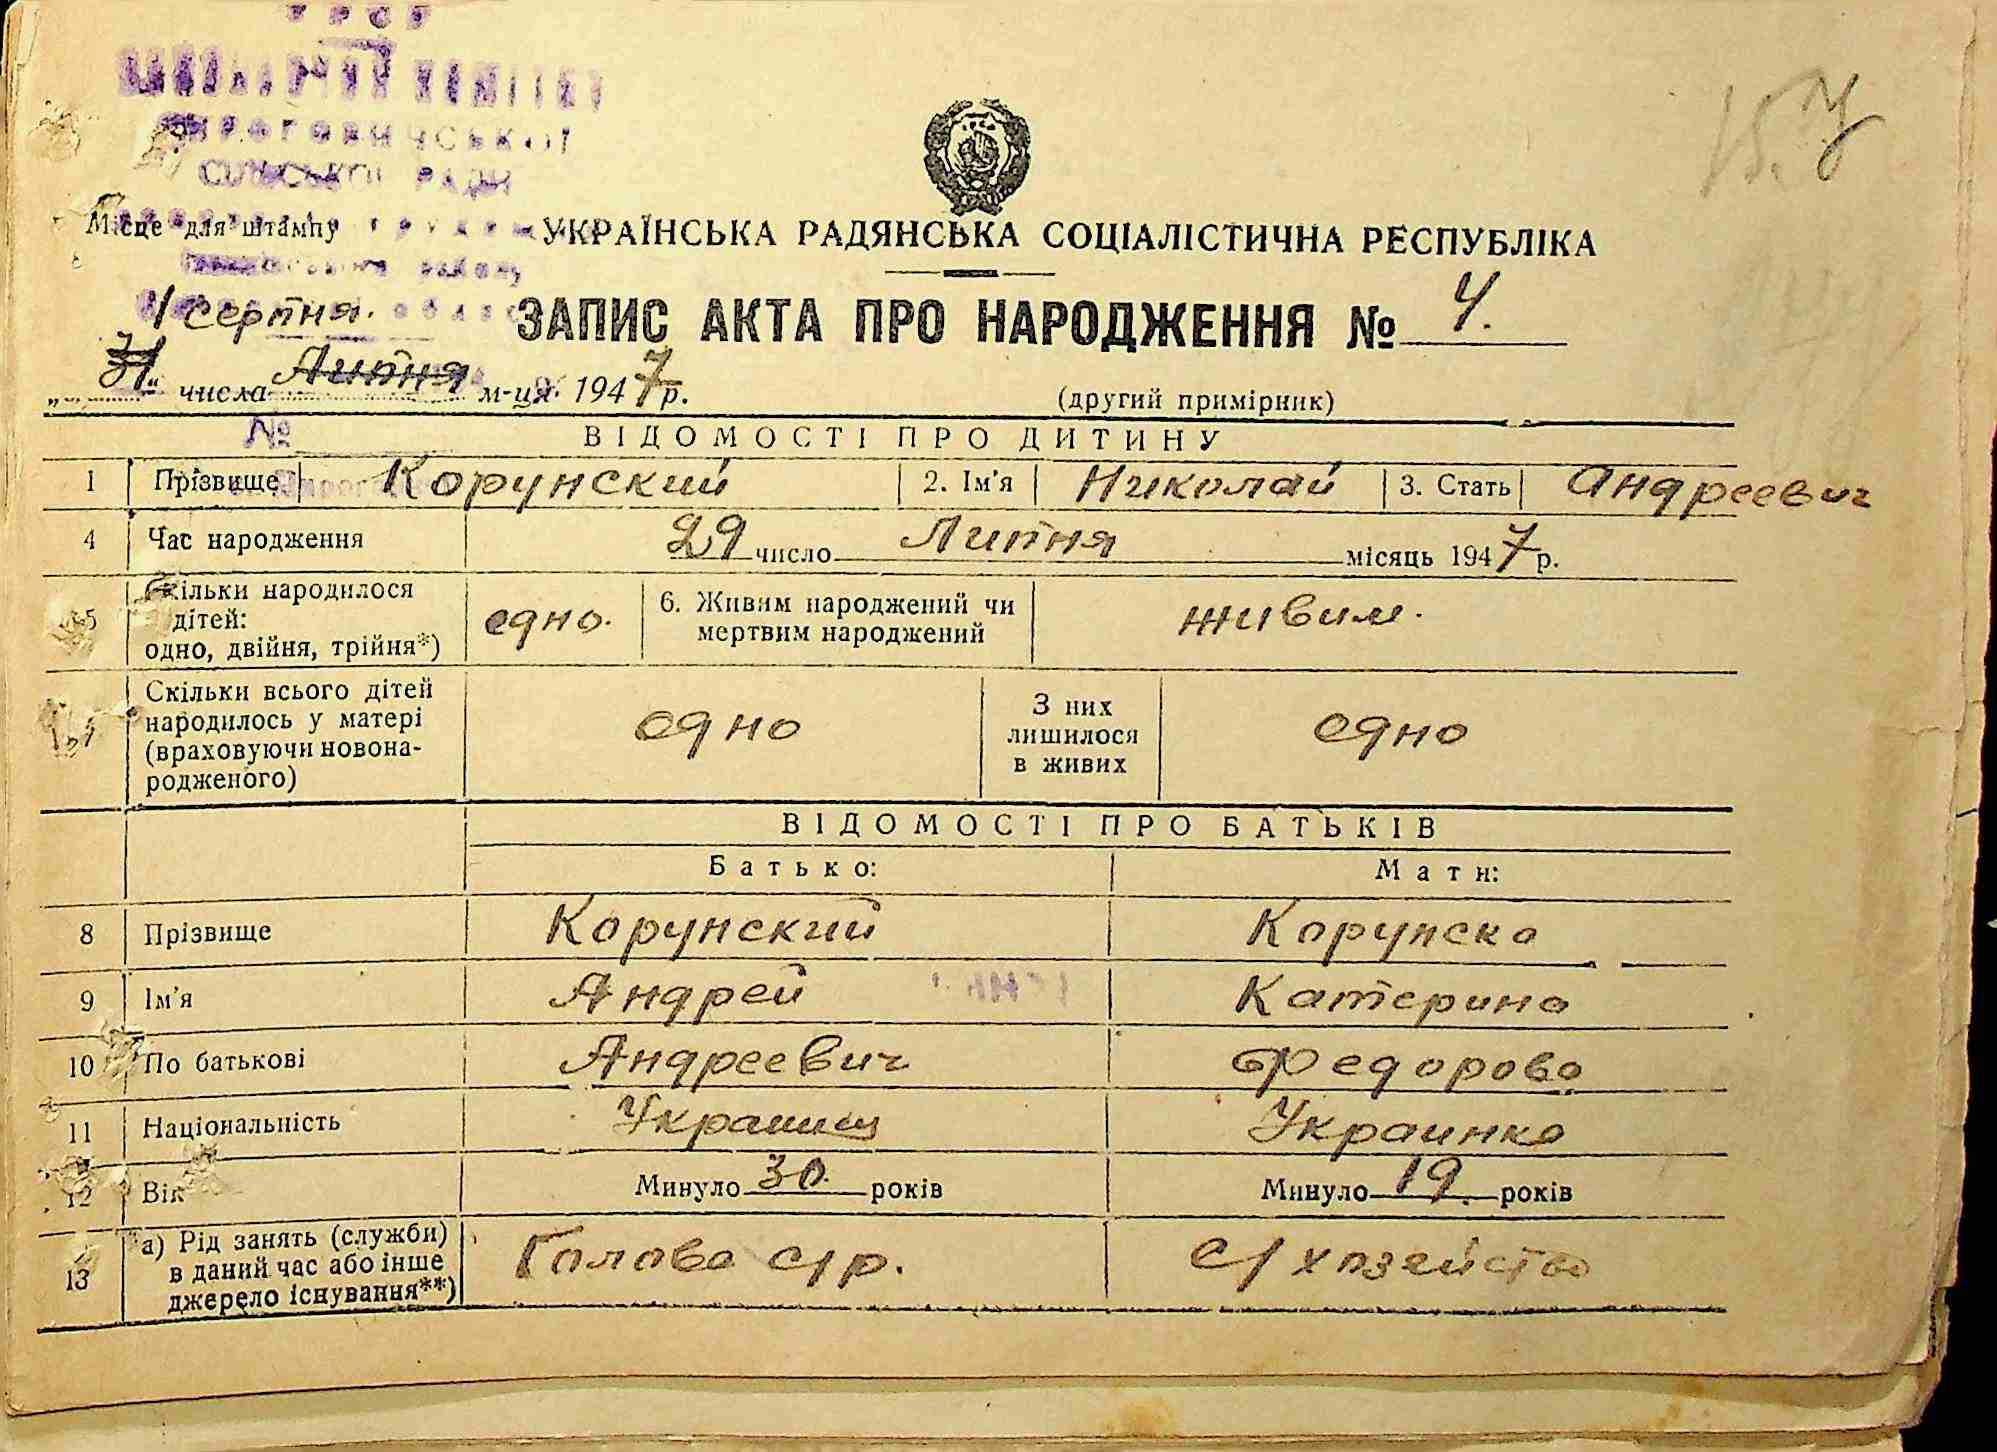 СІЛЬСЬКОЇ РАДИ
району
Місце для штампу
УКРАЇНСЬКА РАДЯНСЬКА СОЦІАЛІСТИЧНА РЕСПУБЛІКА
1 серпня.
ЗАПИС АКТА ПРО НАРОДЖЕННЯ № 4.
„31“ числа Липня м-ця 1947 р.
(другий примірник)
№
ВІДОМОСТІ ПРО ДИТИНУ
1 Прізвище Корунский 2. Ім'я Николай 3. Стать Андреевич
4 Час народження 29 число Липня місяць 1947 р.
5 Скільки народилося дітей: одно, двійня, трійня*) едно. 6. Живим народжений чи мертвим народжений живим.
Скільки всього дітей народилось у матері (враховуючи новонародженого) едно З них лишилося в живих едно
ВІДОМОСТІ ПРО БАТЬКІВ
Батько: Мати:
8 Прізвище Корунский Корунска
9 Ім'я Андрей Катерина
10 По батькові Андреевич Федорова
11 Національність Украинец Украинка
12 Вік Минуло 30. років Минуло 19. років
13 а) Рід занять (служби) в даний час або інше джерело існування**) Голова с/р. с/хозейство